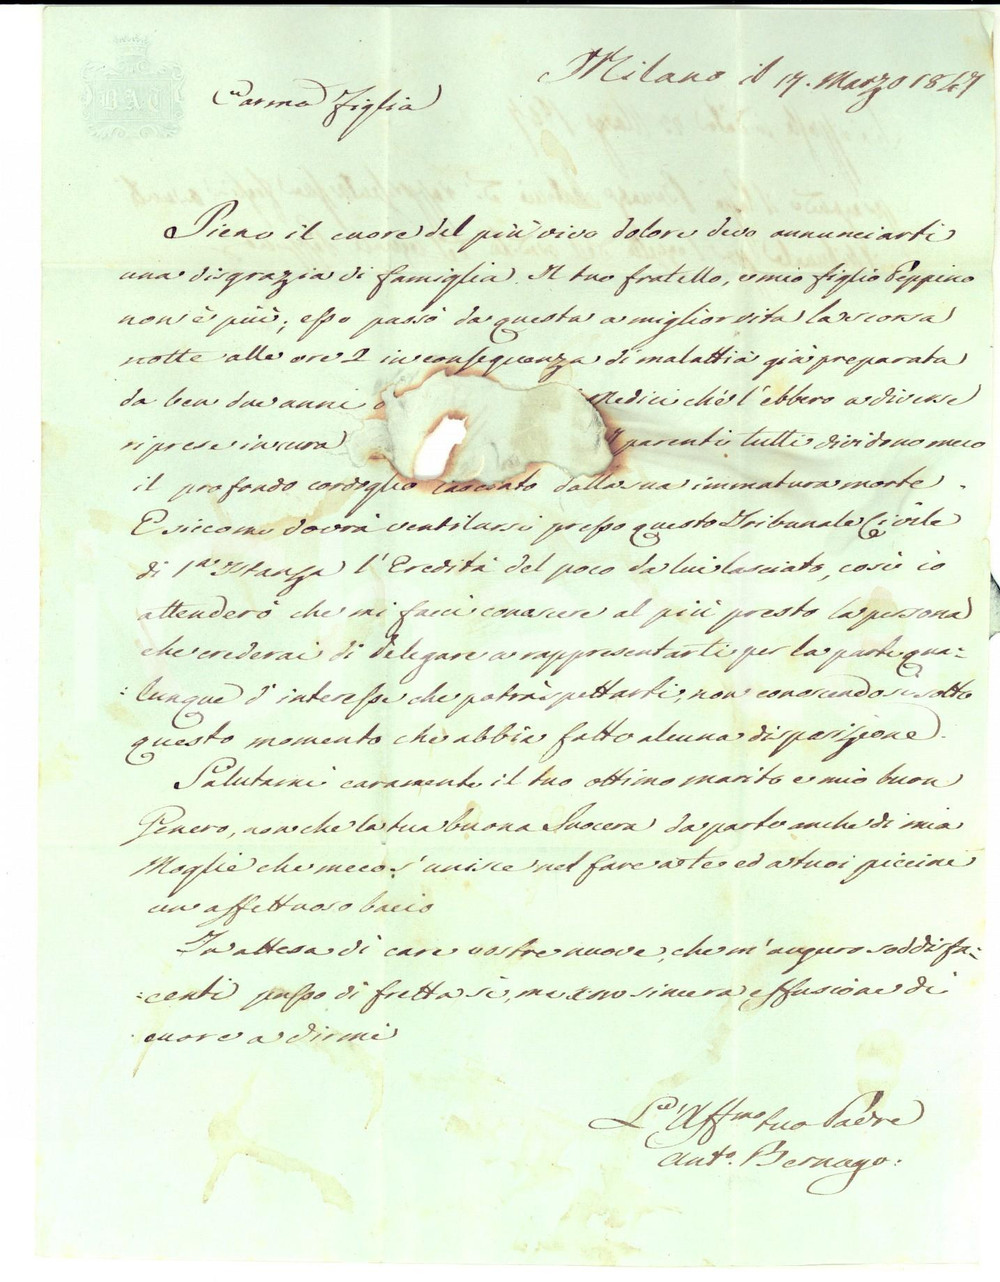 BATH
Milano il 17. Marzo 1847
Carma Figlia
Pieno il cuore del più vivo dolore devo annunciarti
una disgrazia di famiglia. Il tuo fratello, e mio figlio Peppino
non è più; esso passò da questa a miglior vita la scorsa
notte alle ore 2 in conseguenza di malattia già preparata
da ben due anni Medici che l'ebbero a diverse
riprese in cura parenti tutti dividono meco
il profondo cordoglio lasciato dalla sua immatura morte.
E siccome dovrà ventilarsi presso questo Tribunale Civile
di 1ma Istanza l'Eredità del poco da lui lasciato, così io
attenderò che mi facci conoscere al più presto la persona
che crederai di delegare a rappresentarti per la parte qua-
lunque d'interesse che potrà spettarti, non conoscendosi sotto
questo momento che abbia fatto alcuna disposizione.
Salutami caramente il tuo ottimo marito e mio buon
Genero, non che la tua buona Suocera da parte anche di mia
Moglie che meco s'unisce nel fare a te ed a tuoi piccini
un affettuoso bacio
In attesa di care vostre nuove, che m'auguro soddisfa-
centi passo di fretta si, ma con sincera effusione di
cuore a dirmi
L' Affmo tuo Padre
Anto. Bernago